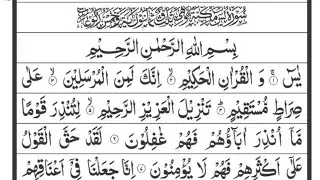 بِسْمِ اللهِ الرَّحْمٰنِ الرَّحِيْمِ
يٰسٓ ۚ۱ وَ الْقُرْاٰنِ الْحَكِيْمِ ۙ۲ اِنَّكَ لَمِنَ الْمُرْسَلِيْنَ ۙ۳ عَلٰى
صِرَاطٍ مُّسْتَقِيْمٍ ؕ۴ تَنْزِيْلَ الْعَزِيْزِ الرَّحِيْمِ ۙ۵ لِتُنْذِرَ قَوْمًا
مَّاۤ اُنْذِرَ اٰبَآؤُهُمْ فَهُمْ غٰفِلُوْنَ ۶ لَقَدْ حَقَّ الْقَوْلُ
عَلٰۤى اَكْثَرِهِمْ فَهُمْ لَا يُؤْمِنُوْنَ ۷ اِنَّا جَعَلْنَا فِيْۤ اَعْنَاقِهِمْ